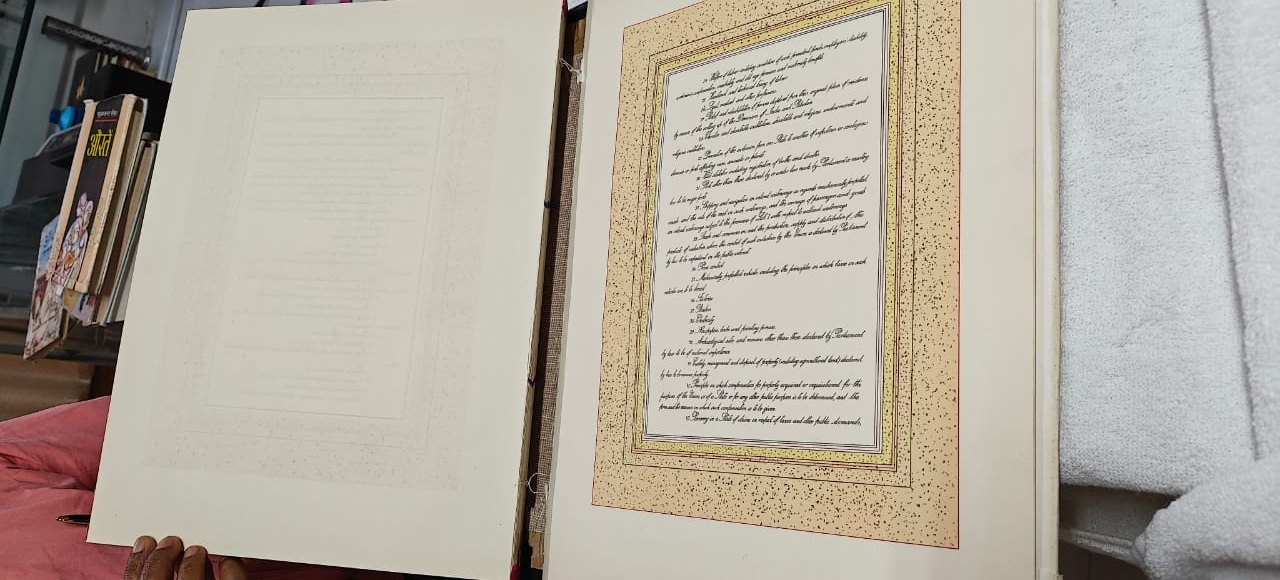 औरतें
24. Welfare of labour including conditions of work, provident funds, employers' liability,
workmen's compensation, invalidity and old age pensions and maternity benefits.
25. Vocational and technical training of labour.
26. Legal, medical and other professions.
27. Relief and rehabilitation of persons displaced from their original place of residence
by reason of the setting up of the Dominions of India and Pakistan.
28. Charities and charitable institutions, charitable and religious endowments and
religious institutions.
29. Prevention of the extension from one State to another of infectious or contagious
diseases or pests affecting men, animals or plants.
30. Vital statistics including registration of births and deaths.
31. Ports other than those declared by or under law made by Parliament or existing
law to be major ports.
32. Shipping and navigation on inland waterways as regards mechanically propelled
vessels, and the rule of the road on such waterways, and the carriage of passengers and goods
on inland waterways subject to the provisions of List I with respect to national waterways.
33. Trade and commerce in, and the production, supply and distribution of, the
products of industries where the control of such industries by the Union is declared by Parliament
by law to be expedient in the public interest.
34. Price control.
35. Mechanically propelled vehicles including the principles on which taxes on such
vehicles are to be levied.
36. Factories.
37. Boilers.
38. Electricity.
39. Newspapers, books and printing presses.
40. Archaeological sites and remains other than those declared by Parliament
by law to be of national importance.
41. Custody, management and disposal of property (including agricultural land) declared
by law to be evacuee property.
42. Principles on which compensation for property acquired or requisitioned for the
purposes of the Union or of a State or for any other public purpose is to be determined, and the
form and the manner in which such compensation is to be given.
43. Recovery in a State of claims in respect of taxes and other public demands,